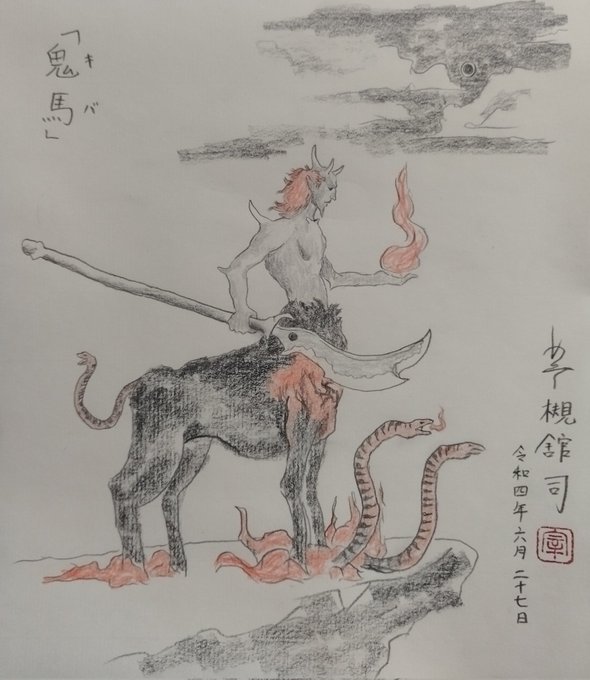 「鬼馬」
キバ
槻舘司
令和四年六月二十七日